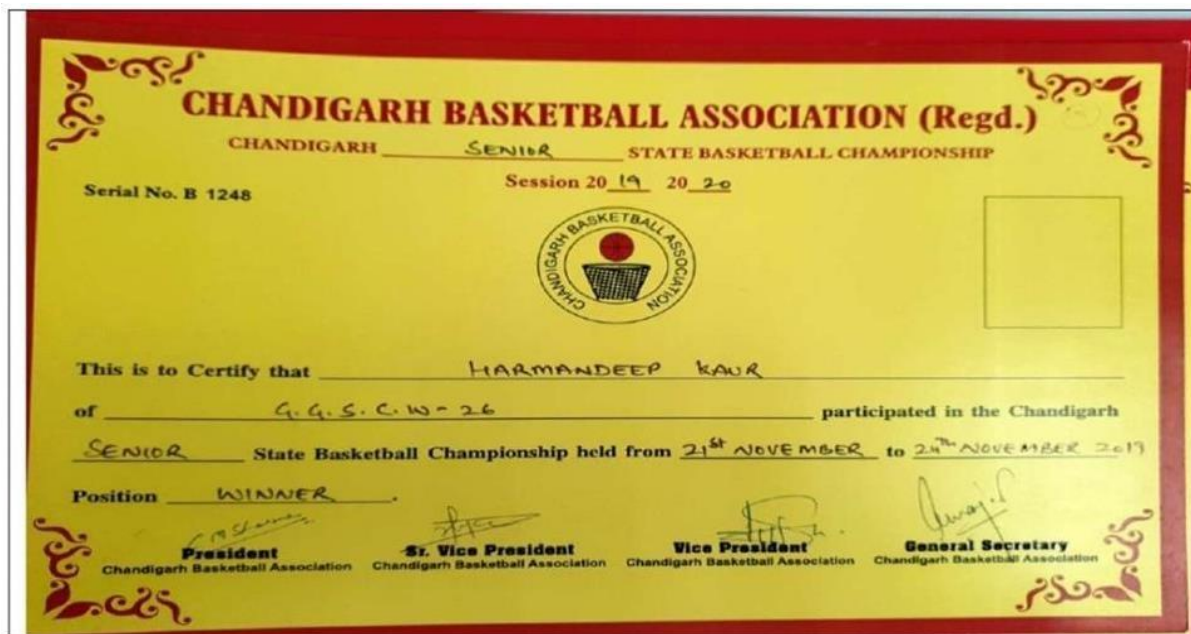 CHANDIGARH BASKETBALL ASSOCIATION (Regd.)
CHANDIGARH SENIOR STATE BASKETBALL CHAMPIONSHIP
Serial No. B 1248
Session 20 19 20 20
CHANDIGARH BASKETBALL ASSOCIATION
This is to Certify that HARMANDEEP KAUR
of G.G.S.C.W-26 participated in the Chandigarh
SENIOR State Basketball Championship held from 21st NOVEMBER to 24th NOVEMBER 2019
Position WINNER.
President Sr. Vice President Vice President General Secretary
Chandigarh Basketball Association Chandigarh Basketball Association Chandigarh Basketball Association Chandigarh Basketball Association